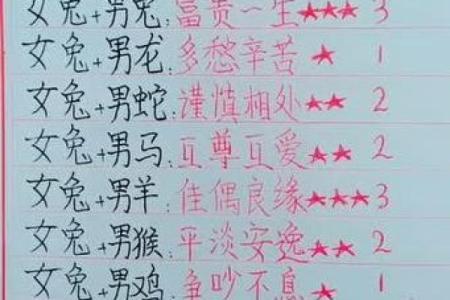 女兔+男兔:富贵一生★★★ 3
女兔+男龙:多愁辛苦★ 1
女兔+男蛇:谨慎相处★★ 2
女兔+男马:互尊互爱★★ 2
女兔+男羊:佳偶良缘★★★3
女兔+男猴:平淡安逸★★ 2
女兔+男鸡:争吵不息★ 1